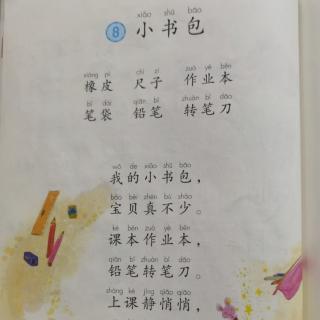 xiǎo shū bāo
8 小书包
xiàng pí chǐ zi zuò yè běn
橡皮 尺子 作业本
bǐ dài qiān bǐ zhuàn bǐ dāo
笔袋 铅笔 转笔刀
wǒ de xiǎo shū bāo
我的小书包，
bǎo bèi zhēn bù shǎo
宝贝真不少。
kè běn zuò yè běn
课本作业本，
qiān bǐ zhuàn bǐ dāo
铅笔转笔刀。
shàng kè jìng qiāo qiāo
上课静悄悄，